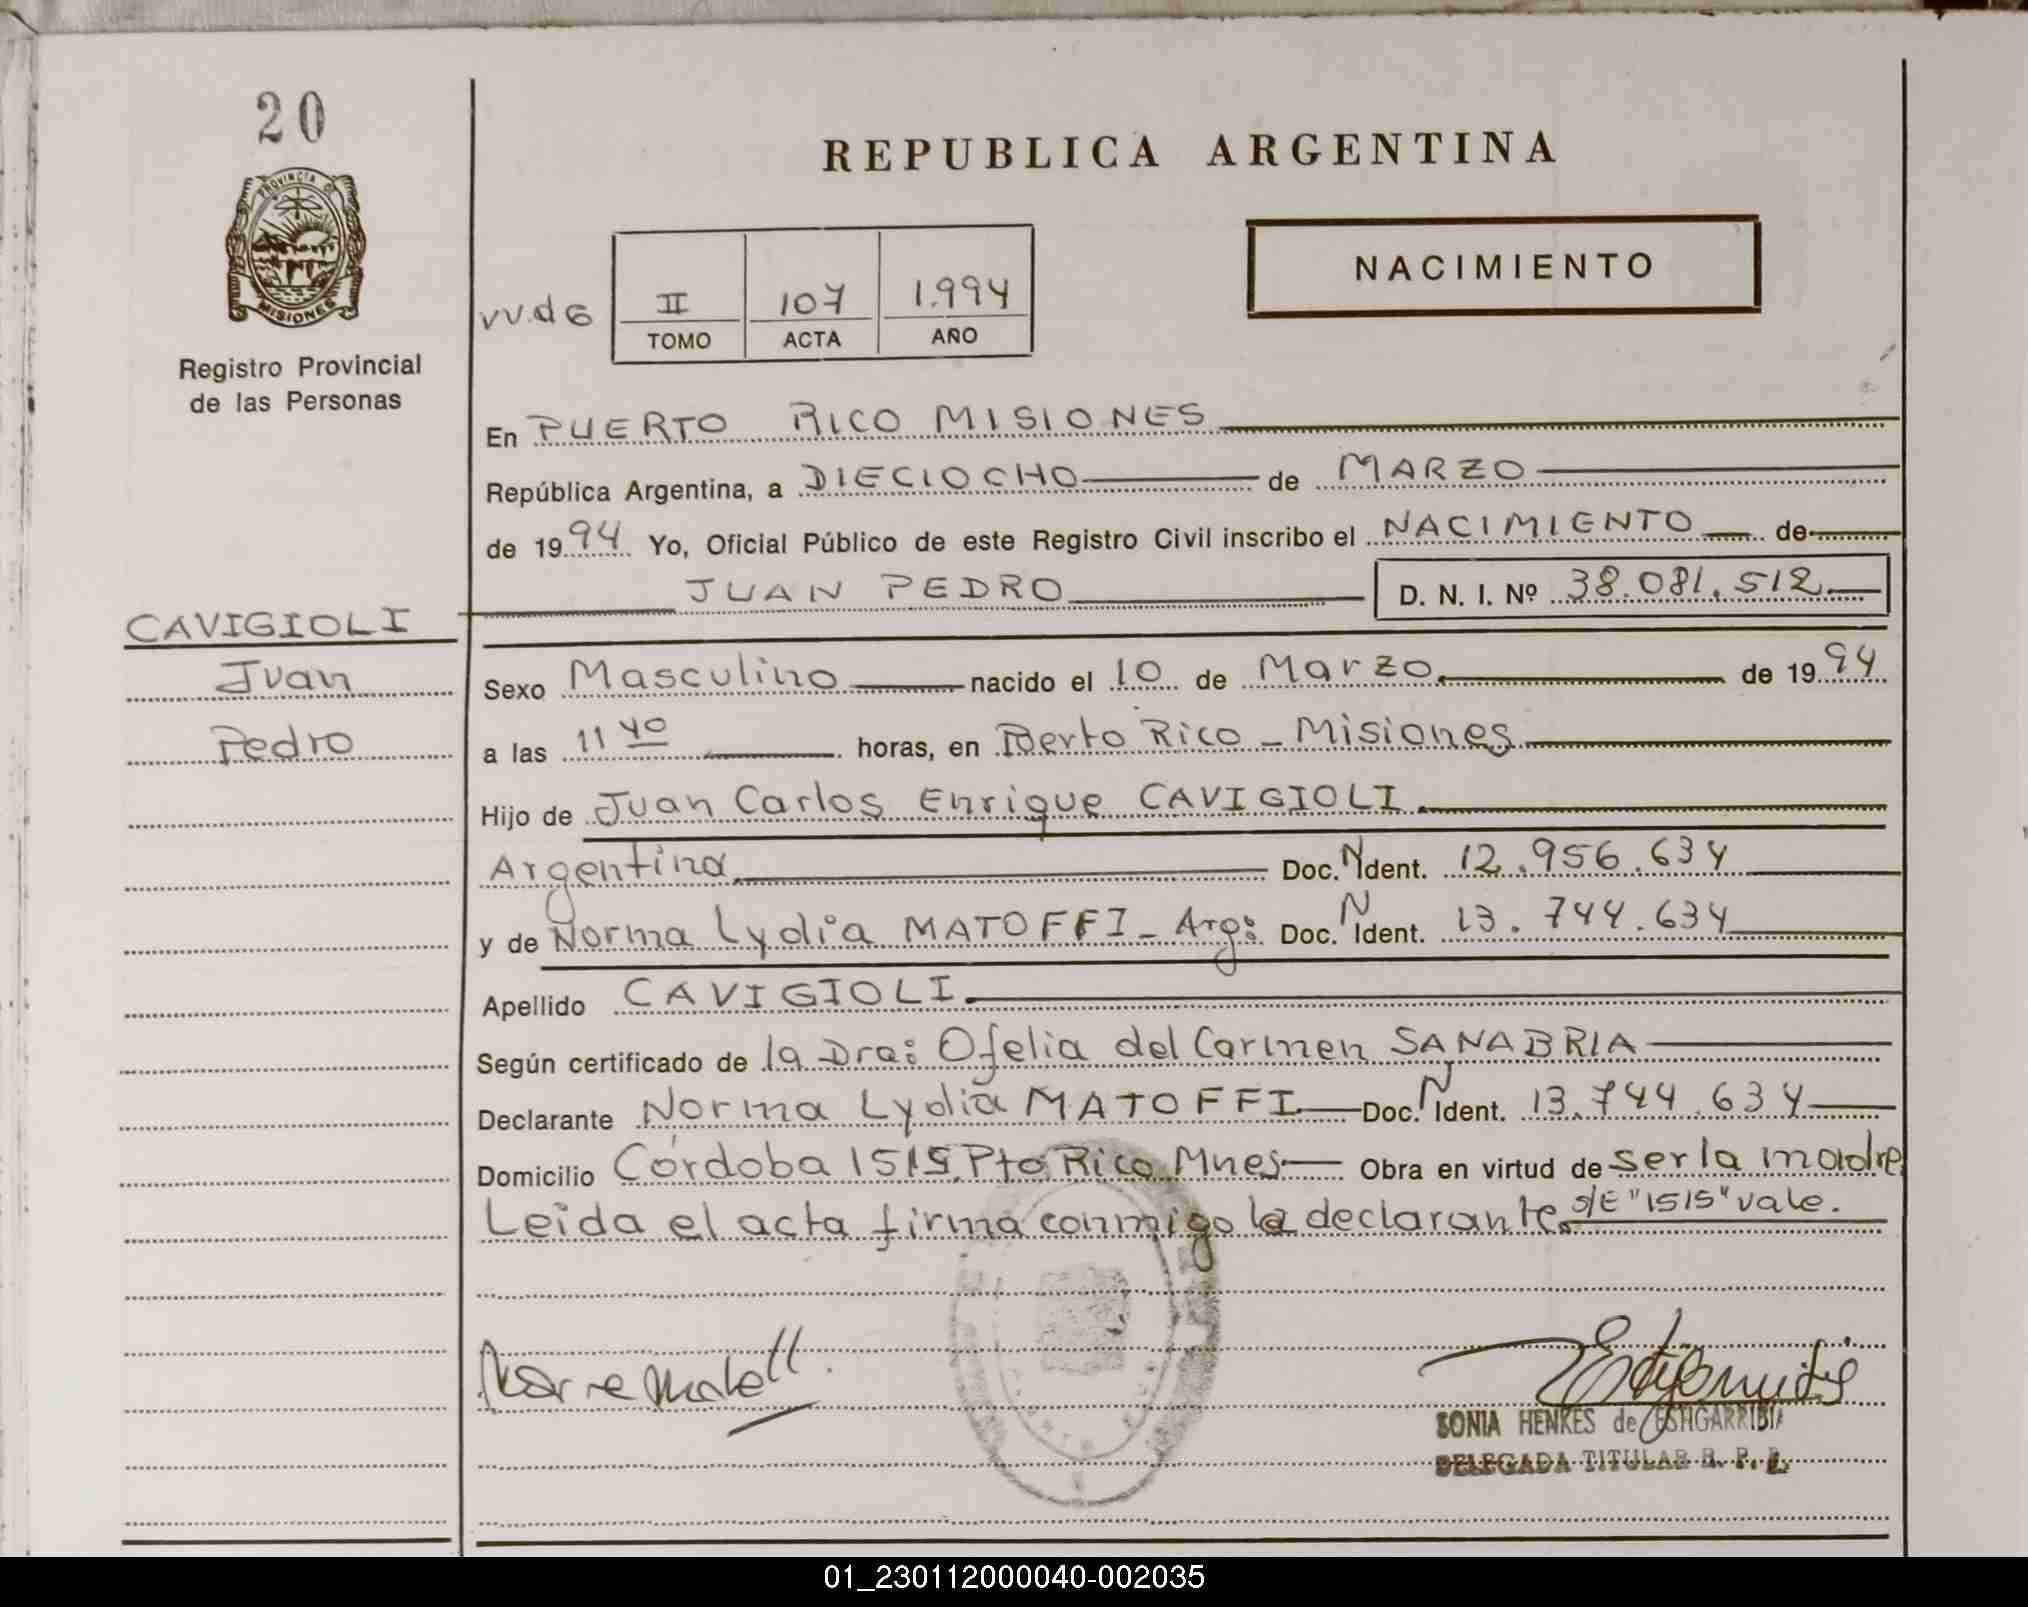 20
PROVINCIA DE
MISIONES
Registro Provincial
de las Personas
REPUBLICA ARGENTINA
NACIMIENTO
II 107 1.994
TOMO ACTA AÑO
En PUERTO RICO MISIONES
República Argentina, a DIECIOCHO de MARZO
de 1994 Yo, Oficial Público de este Registro Civil inscribo el NACIMIENTO de
JUAN PEDRO D. N. I. Nº 38.081.512
CAVIGIOLI
Juan
Pedro
Sexo Masculino nacido el 10 de Marzo de 1994
a las 11 40 horas, en Puerto Rico - Misiones
Hijo de Juan Carlos Enrique CAVIGIOLI
Argentina Doc. N Ident. 12.956.634
y de Norma Lydia MATOFFI - Arg: Doc. N Ident. 13.744.634
Apellido CAVIGIOLI.
Según certificado de la Dra: Ofelia del Carmen SANABRIA
Declarante Norma Lydia MATOFFI Doc. N Ident. 13.744.634
Domicilio Córdoba 1515 Pto Rico Mnes Obra en virtud de ser la madre
Leida el acta firma conmigo la declarante s/E "1515" vale.
SONIA HENKES de ESTIGARRIBIA
DELEGADA TITULAR R. P. P.
01_230112000040-002035